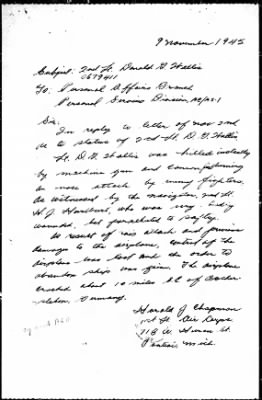 9 November 1945
Subject: 2nd Lt. Donald G. Wallis
0679411
To: Personal Affairs Branch
Personal Services Division
Sir:
In reply to letter of Nov 2nd
as to status of 2nd Lt. D. G. Wallis
Lt. D. G. Wallis was killed instantly
by machine gun and cannon firing
on nose attack by enemy fighters.
As witnessed by the navigator, 2nd Lt.
H. J. who was very badly
wounded, but parachuted to safety.
As result of this attack and previous
damage to the airplane, control of the
airplane was lost and the order to
abandon ship was given. The airplane
crashed about 10 miles of
Germany.
Harold J Chapman
1st Lt Air Corps
718 W. Huron St.
Pontiac Mich